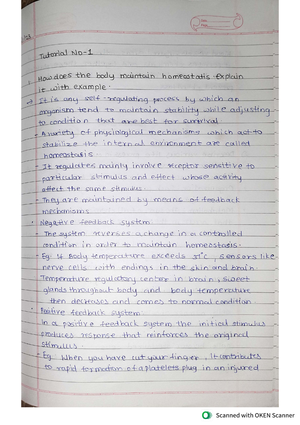 Tutorial No-1
How does the body maintain homeostatis explain
it with example.
→ It is any self-regulating process by which an
organism tend to maintain stability while adjusting
to condition that are best for survival
- A variety of physiological mechanisms which act to
stabilize the internal environment are called
homeostasis.
- It regulates mainly involve receptor sensitive to
particular stimulus and effect whose activity
affect the same stimulus.
- They are maintained by means of feedback
mechanisms.
- Negative feedback system
- The system reverses a change in a controlled
condition in order to maintain homeostasis.
- Eg: If Body temperature exceeds 37°C, sensors like
nerve cells with endings in the skin and brain.
Temperature regulatory center in brain, sweet
glands throughout body and body temperature
then decreases and comes to normal condition.
Positive feedback system
In a positive feedback system the initial stimulus
produces response that reinforces the original
stimulus.
- Eg: When you have cut your finger, It contributes
to rapid formation of a platelets plug in an injured
Scanned with OKEN Scanner